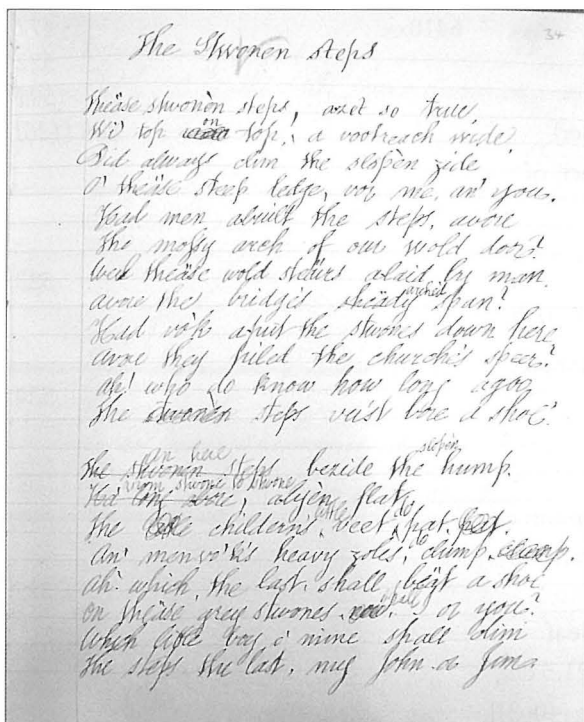 34
The Stwonen steps
Theäse stwonèn steps, azet so true,
Wi' top on top, a vootreach wide,
Did always clim the slopèn zide
O' theäse steep ledge, vor me, an' you.
Had men abuilt the steps, avore
The mossy arch of our wold door?
Wer theäse wold stairs alaid by man
avore the bridge's sheädy arched span?
Had vo'k aput the stwones down here
avore they piled the church's speer?
ah! who do know how long agoo
the stwonèn steps vu'st bore a shoe?
an here
The stwonen steps bezide the slopèn hump
vrom stwone to stwone
, alyèn flat,
the childern's little veet do pat
An' men vo'k's heavy zoles do clump
ah! which the last shall beät a shoe
on theäse grey stwones or you?
Which little boy o' mine shall clim
the steps the last, my John or Jim